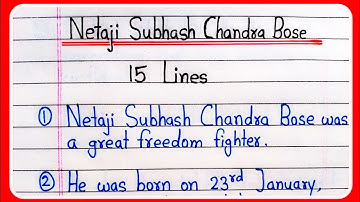 Netaji Subhash Chandra Bose
15 Lines
① Netaji Subhash Chandra Bose was
a great freedom fighter.
② He was born on 23rd January,